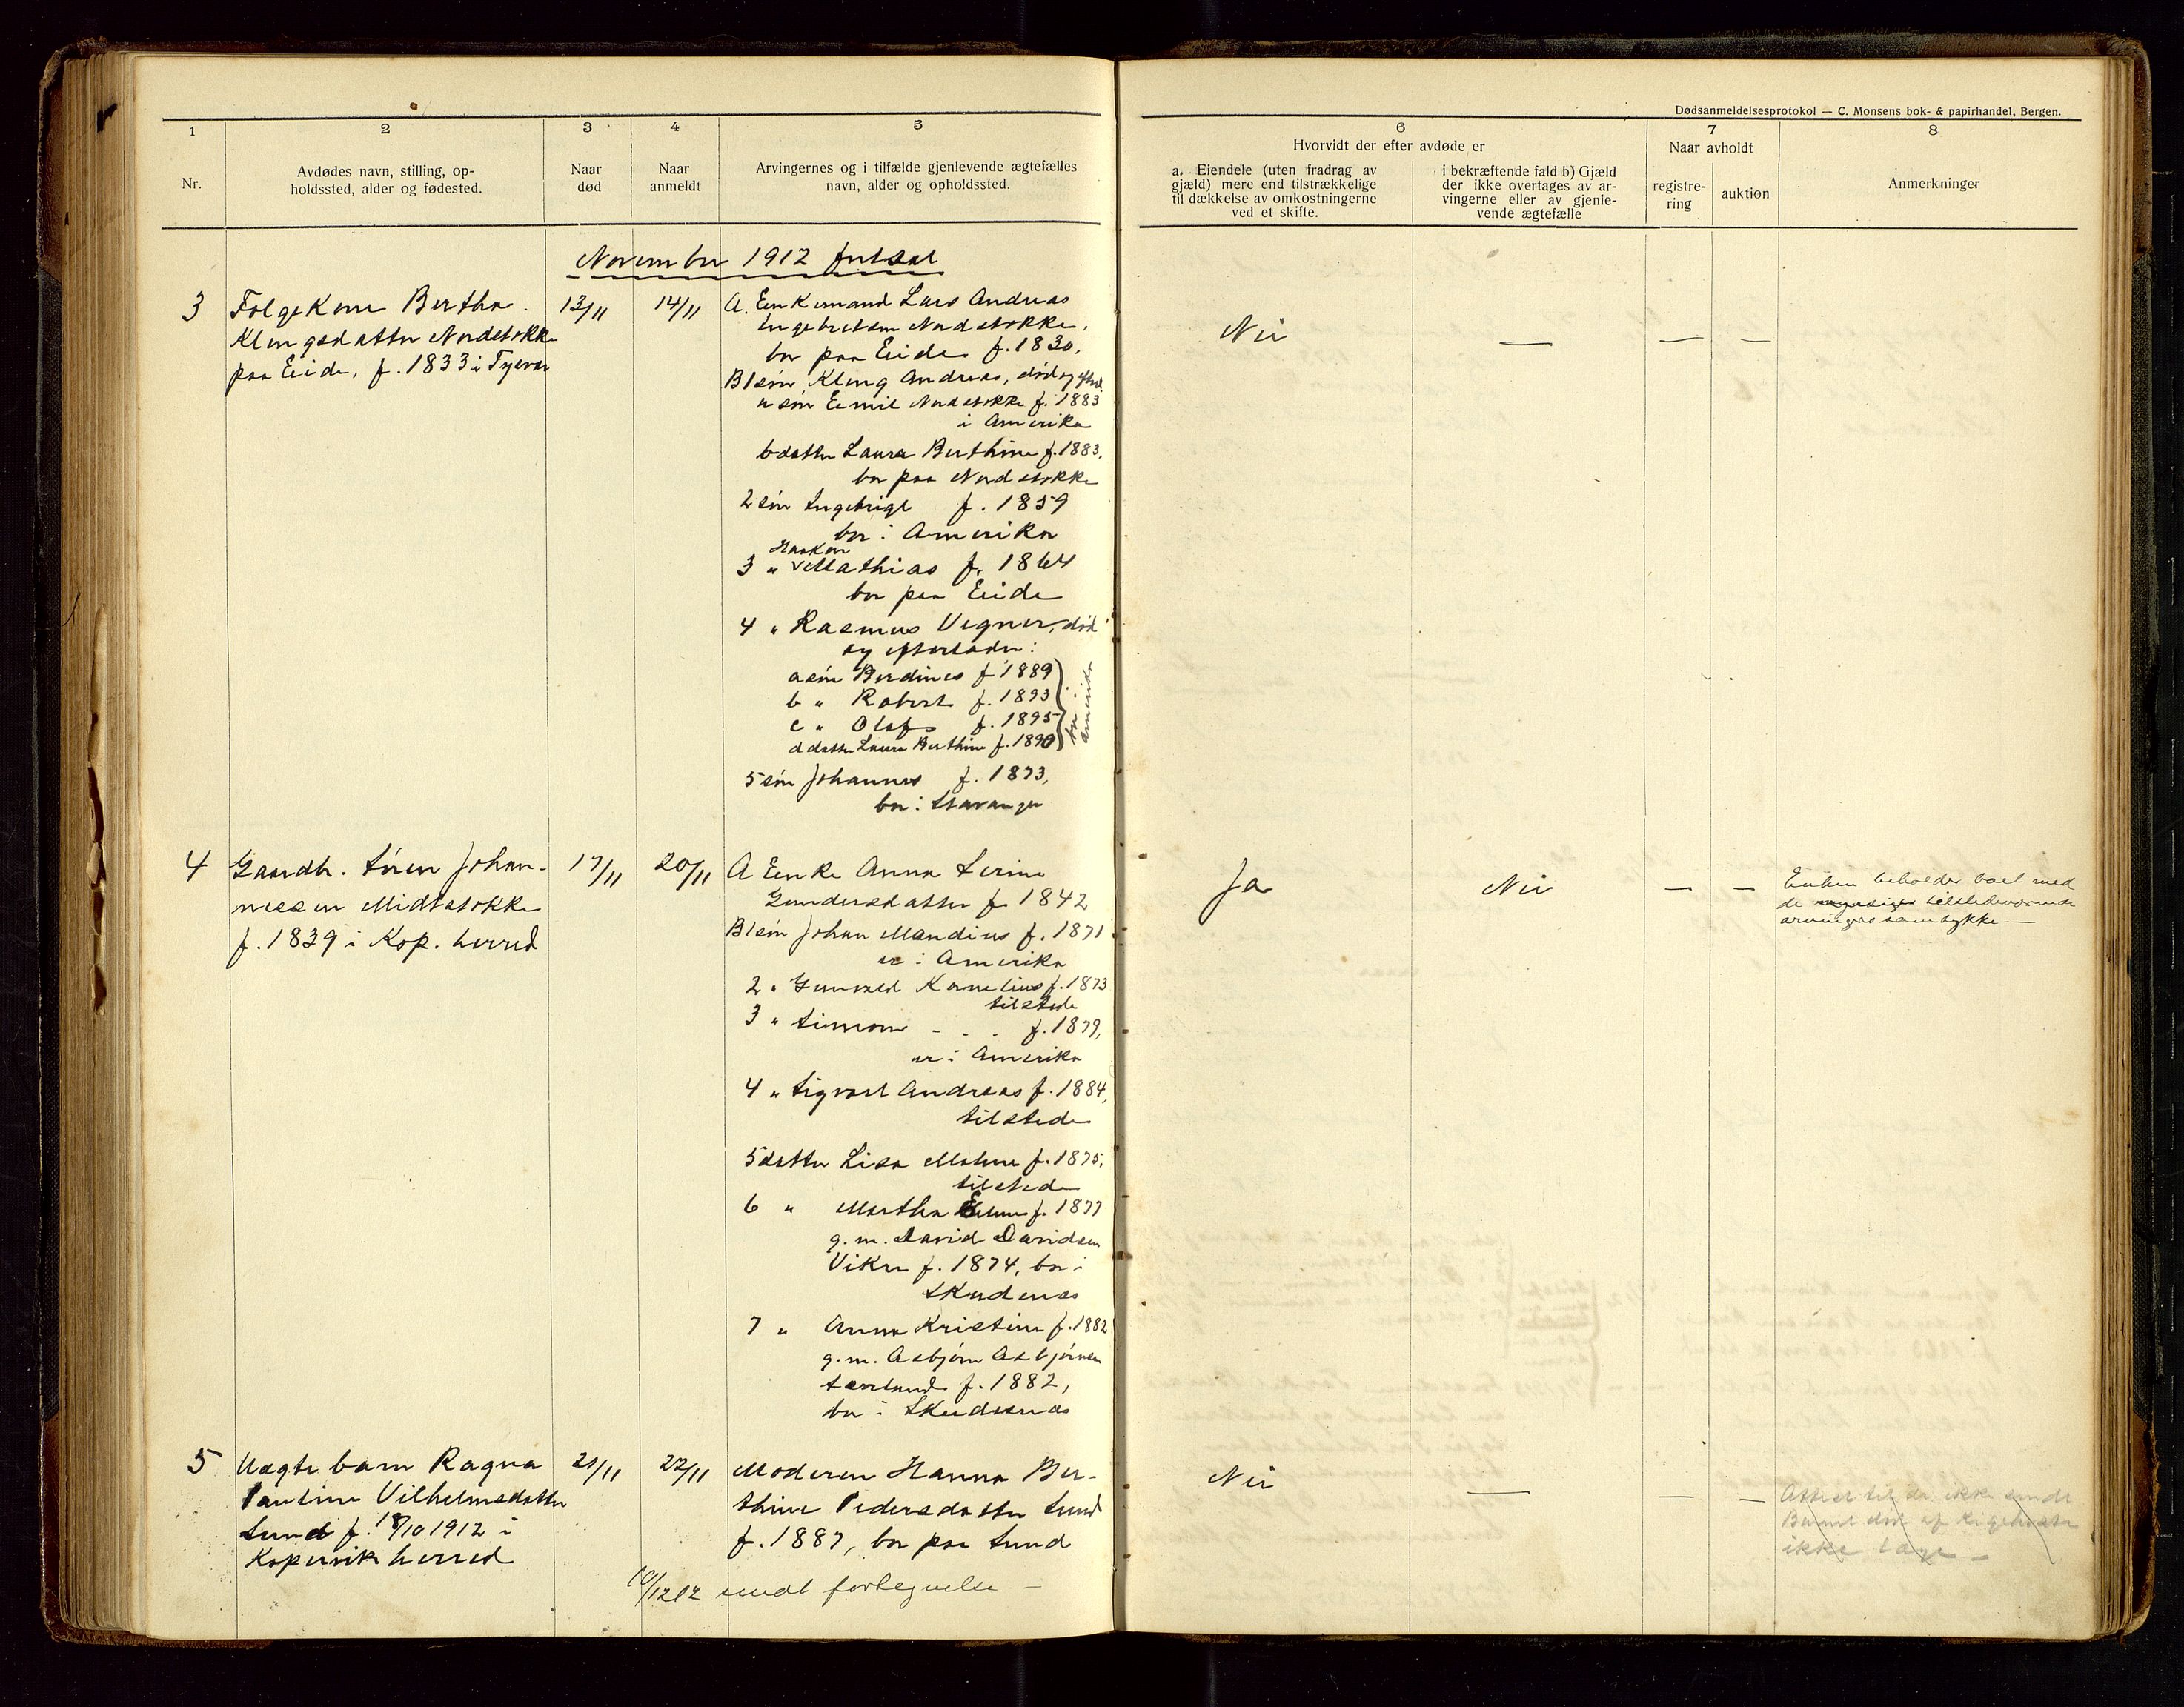 Dødsanmeldelsesprotokol — C. Monsens bok- & papirhandel, Bergen.
1
2
3
4
5
6
7
8
Nr.
Avdødes navn, stilling, op-
holdssted, alder og fødested.
Naar
død
Naar
anmeldt
Arvingernes og i tilfælde gjenlevende ægtefælles
navn, alder og opholdssted.
Hvorvidt der efter avdøde er
a. Eiendele (uten fradrag av
gjæld) mere end tilstrækkelige
til dækkelse av omkostningerne
ved et skifte.
i bekræftende fald b) Gjæld
der ikke overtages av ar-
vingerne eller av gjenle-
vende ægtefælle
Naar avholdt
registre-
ring
auktion
Anmerkninger
November 1912 fortsat
3
Folgekone Bertha
Klengsdatter Nordstokke
paa Eide, f. 1833 i Tysvær
13/11
14/11
A. Enkemand Lars Andreas
Engebretsen Nordstokke,
bor paa Eide f. 1830.
B 1 søn Kleng Andreas, død og
a søn Emil Nordstokke f. 1883
i Amerika
b datter Laura Berthine f. 1883,
bor paa Nordstokke
2 søn Ingebrigt f. 1859
bor i Amerika
Haakon
3 " Mathias f. 1864
bor paa Eide
4 " Rasmus Vegner, død
og efterlader:
a søn Berdines f 1889
b " Robert f. 1893
c " Olaf f. 1895
d datter Laura Berthine f. 1890
bor i
Amerika
5 søn Johannes f. 1873,
bor i Stavanger
Nei
—
—
—
4
Gaardbr. Sören Johan-
nessen Midtstokke
f. 1839 i Kop. herred
17/11
20/11
A Enke Anna Serine
Gundersdatter f. 1842
B 1 søn Johan Mandius f. 1871
er i Amerika
2 " Gunvald Kornelius f. 1873
tilstede
3 " Simon - . . f. 1879,
er i Amerika
4 " Sigvart Andreas f. 1884,
tilstede
5 datter Lisa Malene f. 1875,
tilstede
6 " Martha Elene f. 1877
g. m. David Davidsen
Vikre f. 1874, bor i
Skudenæs
7 " Anna Kristine f. 1882
g. m. Asbjörn Asbjörnsen
Sævland f. 1882,
bor i Skudesnæs
Ja
Nei
—
—
Enken beholder boet med
de tilstedeværende
arvingers samtykke. —
5
Uægte barn Ragna
Pauline Vilhelmsdatter
Sund f. 18/10 1912 i
Kopervik herred
21/11
22/11
Moderen Hanna Ber-
thine Pedersdatter Sund
f. 1887, bor paa Sund
10/12 12 sendt fortegnelse. —
Nei
—
—
—
Attest til ikke sendt
Barnet død af Kighoste
ikke læge —